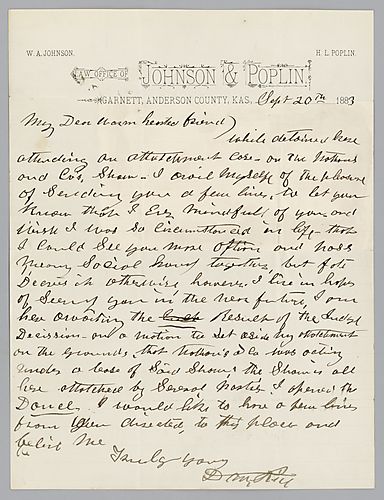 W. A. JOHNSON.
H. L. POPLIN.
LAW OFFICE OF JOHNSON & POPLIN.
GARNETT, ANDERSON COUNTY, KAS, Sept 20th 1883
My Dear warm hearted friend
while detained here
attending an attachment case on the
and Cos, Show. I avail myself of the pleasure
of sending you a few lines, to let you
know that I Ever mindful of you and
wish I was so circumstanced in life that
I could see you more often and pass
many social hours together, but fate
Decrees it otherwise however. I live in hopes
of seeing you in the near future, I am
here awaiting the Result of the Judge
Decision on a motion to set aside my attachment
on the grounds, that & Co was acting
under a lease of said Show. the Show is all
here attached by Several Parties. I opened the
Dance. I would like to have a few lines
from you directed, to this place and
belive me
Truly yours
Dan Rice